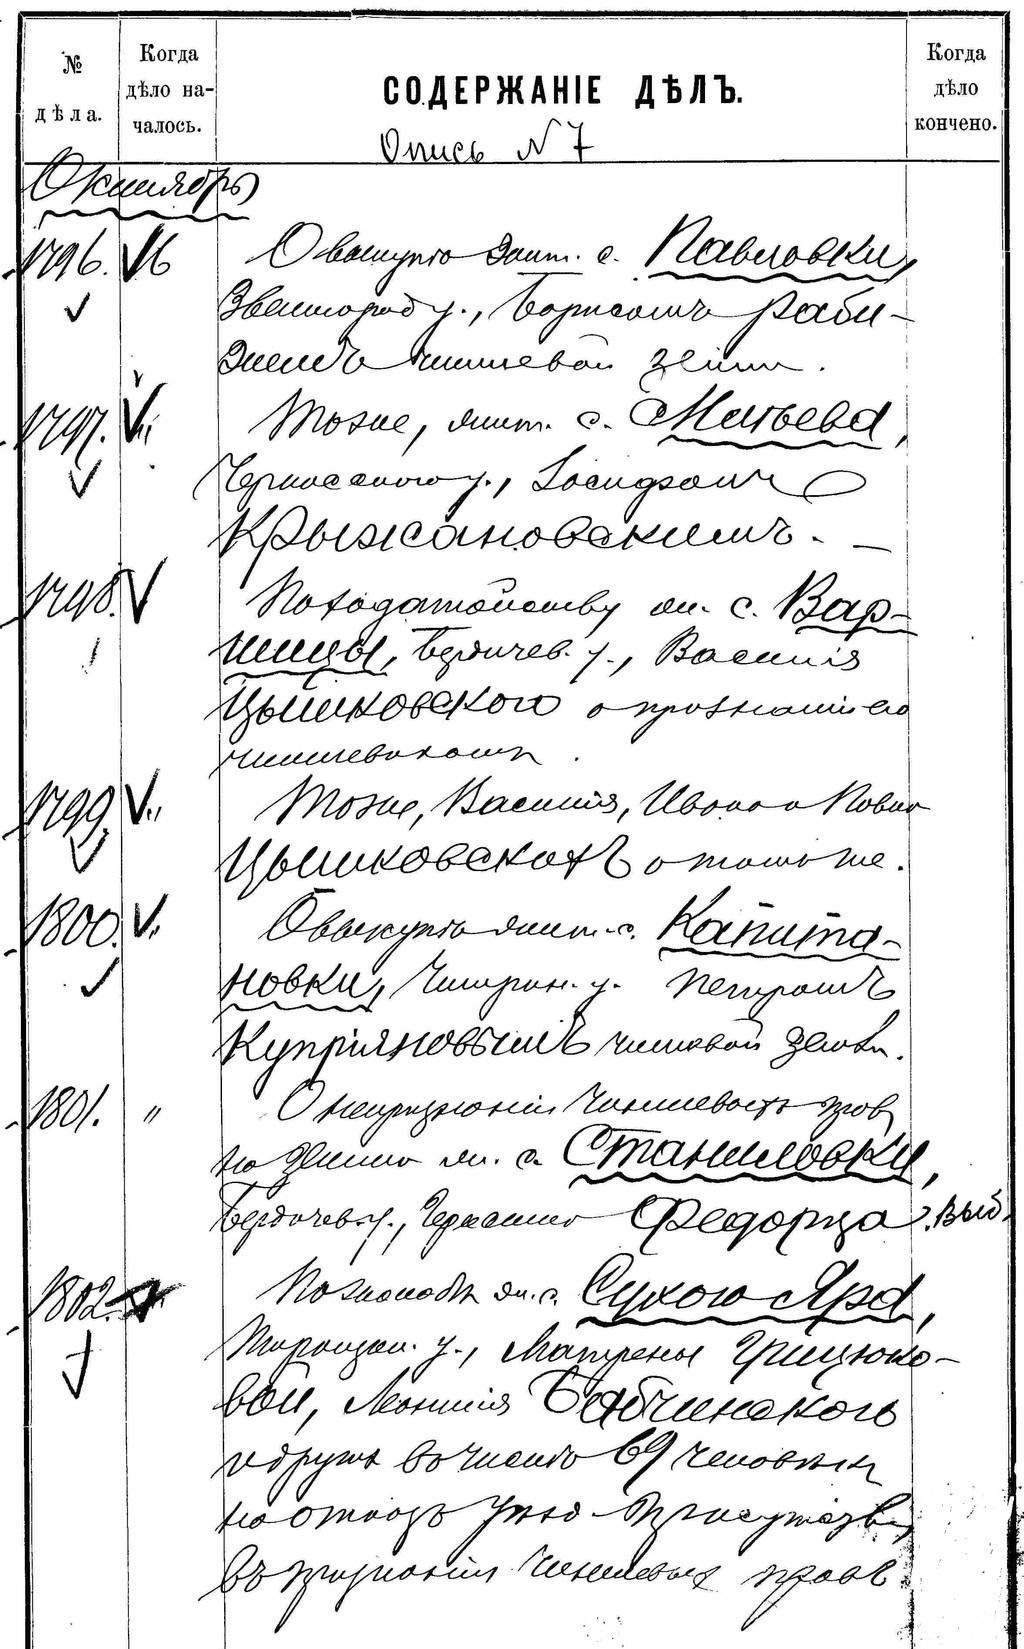 № дѣла.
Когда дѣло на-чалось.
СОДЕРЖАНІЕ ДѢЛЪ.
Когда дѣло кончено.
Опись N 7
Октябрь
1796. 16 О выкупѣ жит. с. Павловки,
Звенигород у., Борисомъ Раби-
чиншевой земли.
1797. " Тоже, жит. с. Матвева,
Черкасскаго у., Іосифомъ
Крыжановскимъ. —
1798. По ходатайству жи. с. Вар-
шицы, Бердичев. у., Василія
Цышковскаго о признаніи его
чиншевикомъ.
1799. " Тоже, Василія, Ивана и Павла
Цышковскихъ о томъ же.
1800. " О выкупѣ жит. с. Капита-
новки, Чигрин. у. Петромъ
Куприяновымъ чиншевой земли.
1801. " О непризнаніи чиншевыхъ правъ
на землю жи. с. Станиловки,
Бердичев. у., Герасима Федорца. Выб.
1802. По жалобѣ жи. с. Сухого Яра,
Таращан. у., Матрены Грицюко-
вой, Бабчинскаго
и друг. въ числѣ 69 человѣкъ
на отказъ Уѣзд. Присутствія
въ признаніи чиншевыхъ правъ